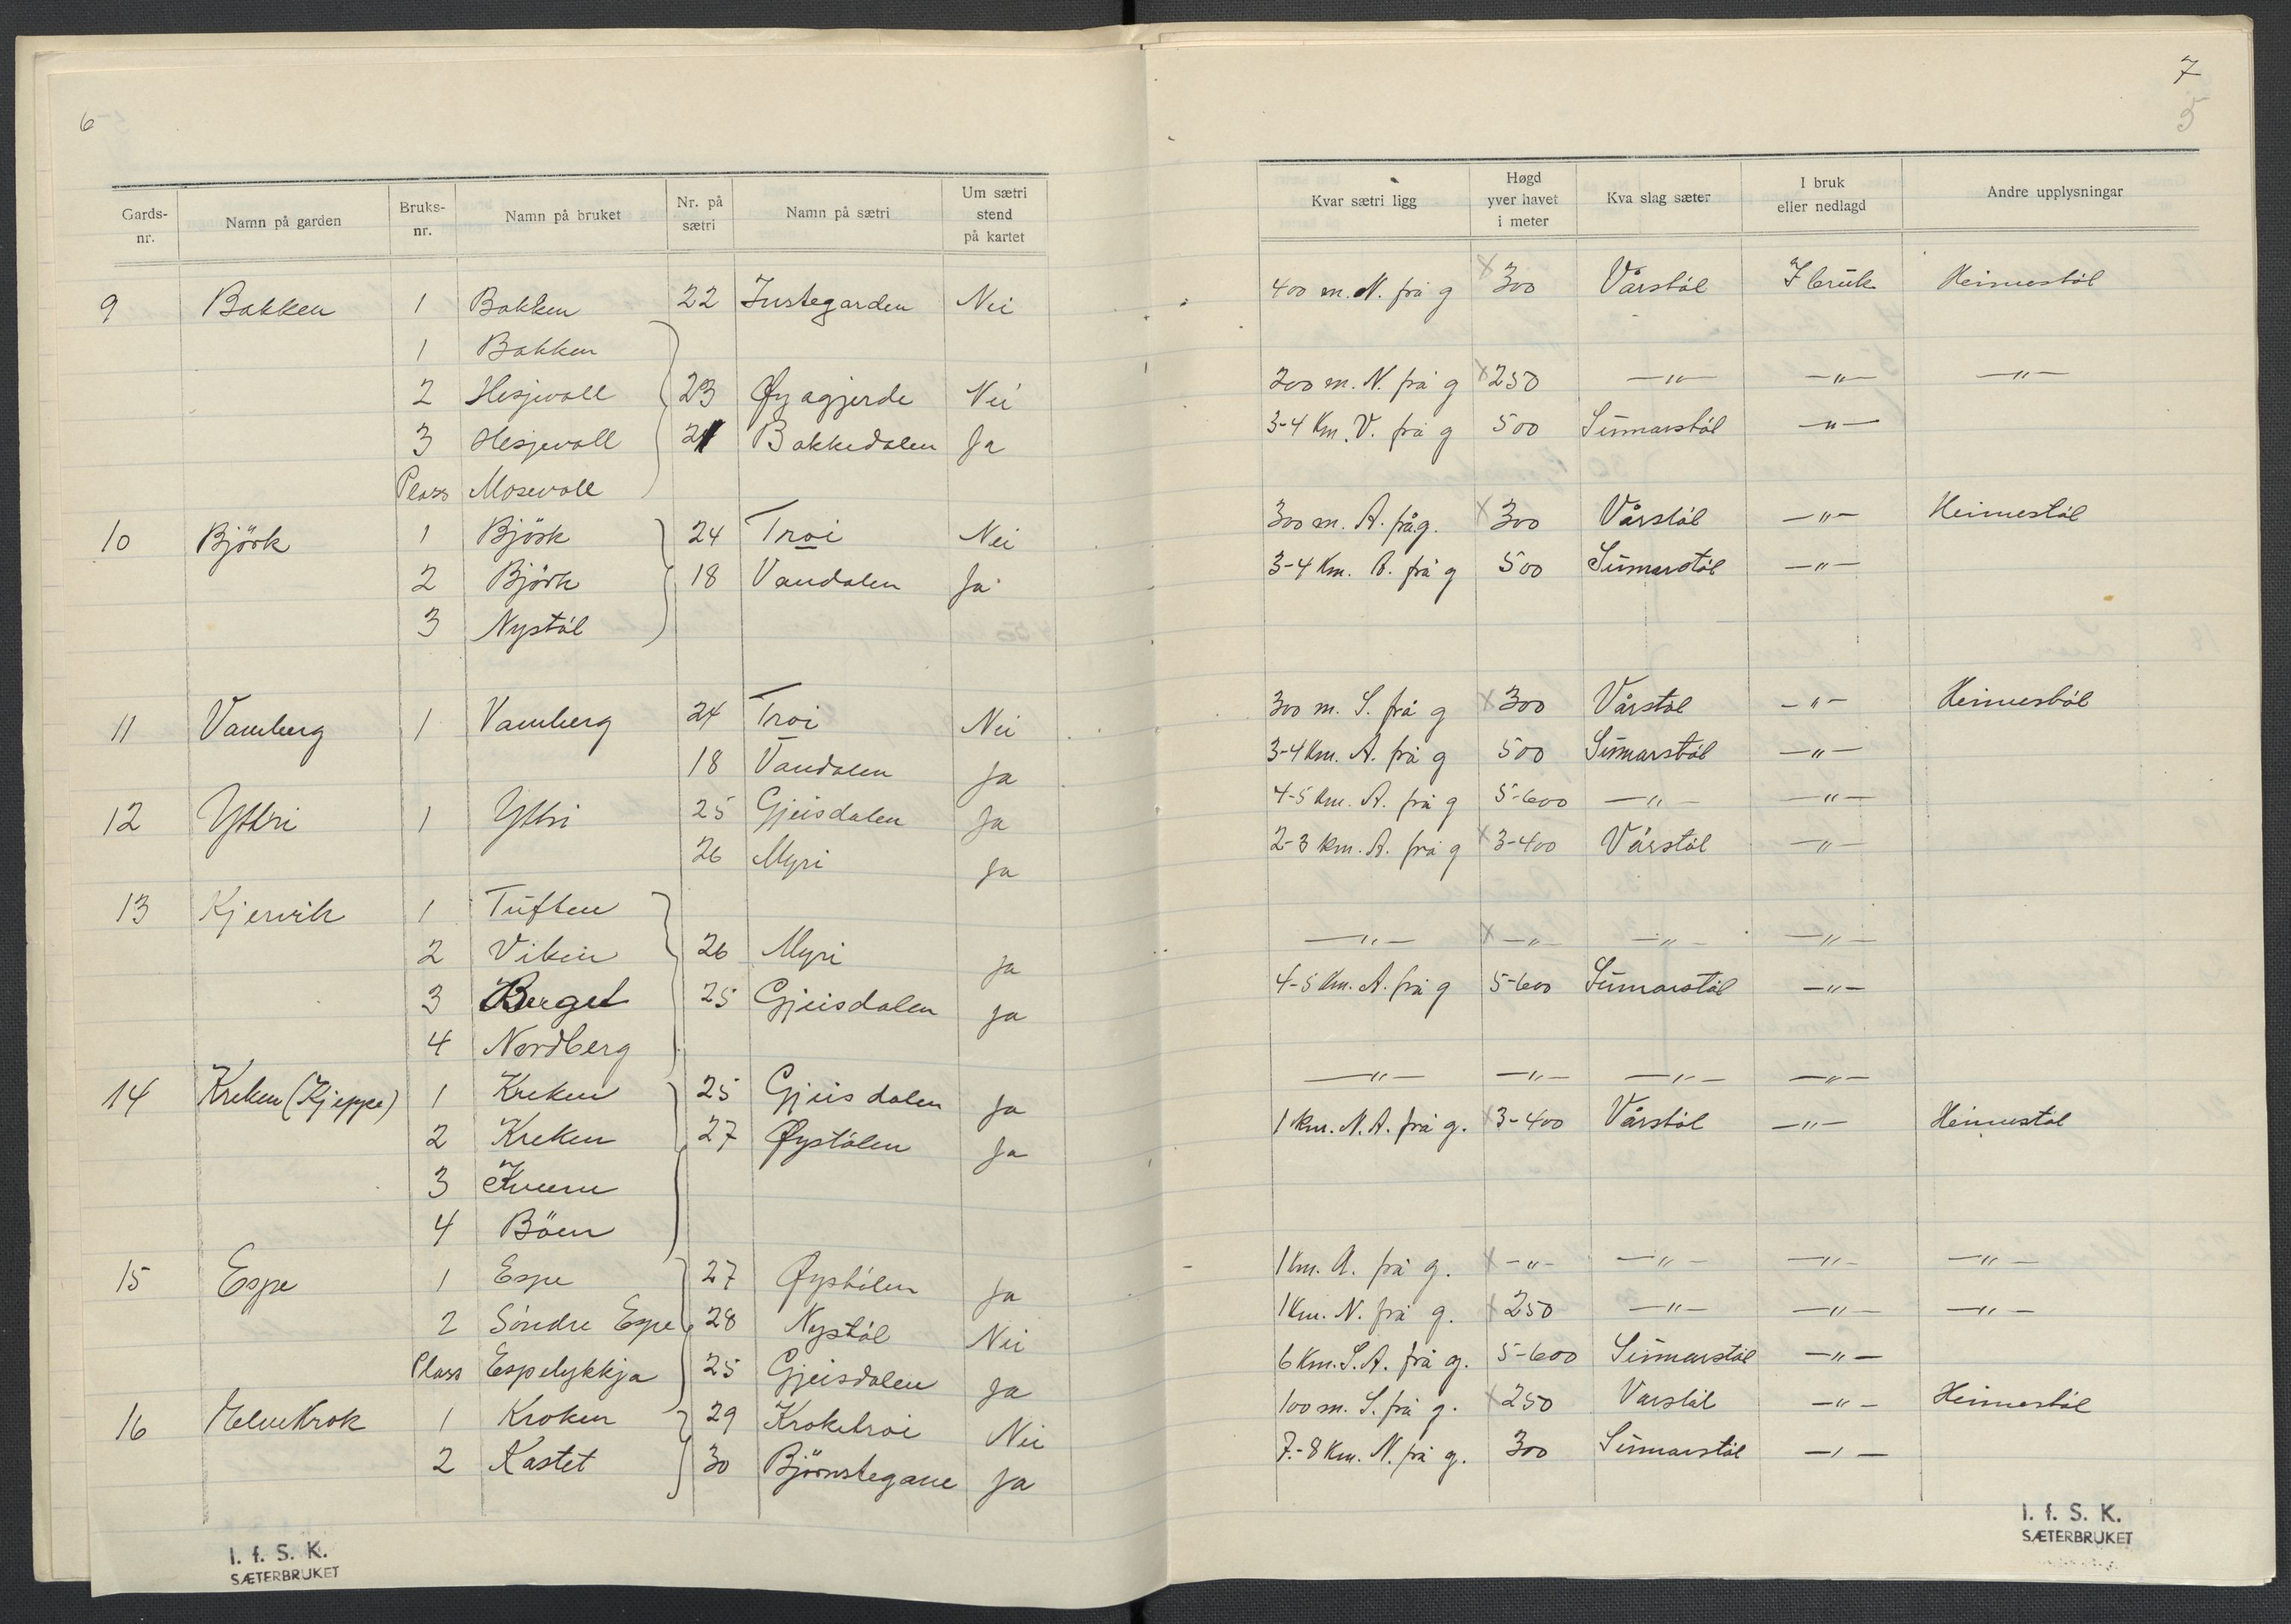 6
Gards-nr. Namn på garden Bruks-nr. Namn på bruket Nr. på sætri Namn på sætri Um sætri stend på kartet
9 Bakken 1 Bakken 22 Justegarden Nei
1 Bakken
2 Hesjevoll 23 Øyagjerde Nei
3 Hesjevoll 21 Bakkedalen Ja
Plass Mosevoll
10 Björk 1 Björk 24 Troi Nei
2 Björk 18 Vandalen Ja
3 Nystöl
11 Vamberg 1 Vamberg 24 Troi Nei
18 Vandalen Ja
12 Yttri 1 Yttri 25 Gjeisdalen Ja
26 Myri Ja
13 Kjervik 1 Tuften
2 Vikin 26 Myri Ja
3 Berget 25 Gjeisdalen Ja
4 Nordberg
14 Kreken (Kjeppe) 1 Kreken 25 Gjeisdalen Ja
2 Kreken 27 Øystölen Ja
3
4 Böen
15 Espe 1 Espe 27 Øystölen Ja
2 Söndre Espe 28 Nystöl Nei
Plass Espelykkja 25 Gjeisdalen Ja
16 1 Kroken 29 Kroketroi Nei
2 Kastet 30 Björnstegane Ja
I. f. S. K.
SÆTERBRUKET
7
5
Kvar sætri ligg Høgd yver havet i meter Kva slag sæter I bruk eller nedlagd Andre upplysningar
400 m. N. frå g x 300 Vårstöl I bruk Heimestöl
200 m. N. frå g x 250 —"— —"— —"—
3-4 Km. V. frå g 500 Sumarstöl —"—
300 m. A. frå g. x 300 Vårstöl —"— Heimestöl
3-4 Km. A. frå g 500 Sumarstöl —"—
300 m. S. frå g x 300 Vårstöl —"— Heimestöl
3-4 Km. A. frå g 500 Sumarstöl —"—
4-5 Km. A. frå g 5-600 —"— —"—
2-3 Km. A. frå g x 3-400 Vårstöl —"—
—"— x —"— —"— —"—
4-5 Km. A. frå g 5-600 Sumarstöl —"—
—"— —"— —"— —"—
1 Km. N. A. frå g. x 3-400 Vårstöl —"— Heimestöl
1 Km. A. frå g. x —"— —"— —"— —"—
1 Km. N. frå g. x 250 —"— —"— —"—
6 Km. S. A. frå g. 5-600 Sumarstöl —"—
100 m. S. frå g. x 250 Vårstöl —"— Heimestöl
7-8 Km. N. frå g. 300 Sumarstöl —"—
I. f. S. K.
SÆTERBRUKET